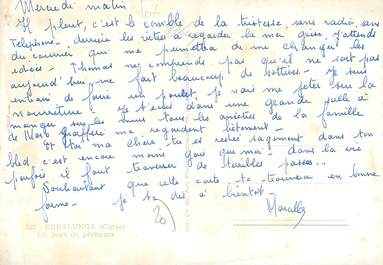 Mercredi matin
Il pleut, c'est le comble de la tristesse, sans radio, sans
téléphone, derrière les vitres à regarder la mer grise, j'attends
du courrier qui me permettra de me changer les
idées - Thomas ne comprends pas qu'il ne soit pas
aujourd'hui, me fait beaucoup de sottises - Je suis
entrain de faire un poulet, je vais me jeter sur la
nourriture ! Je t'écris dans une grande salle à
manger où tous les ancêtres de la famille
de me regardent bêtement -
Et toi ma chérie, tu es restée sagement dans ton
bled, c'est encore moins gai que moi - dans la vie
parfois il faut traverser de terribles passes...
Souhaitant que cette carte te trouvera en bonne
forme - je te dis à bientôt -
20
ERBALUNGA (Corse)
Un port de pêcheurs